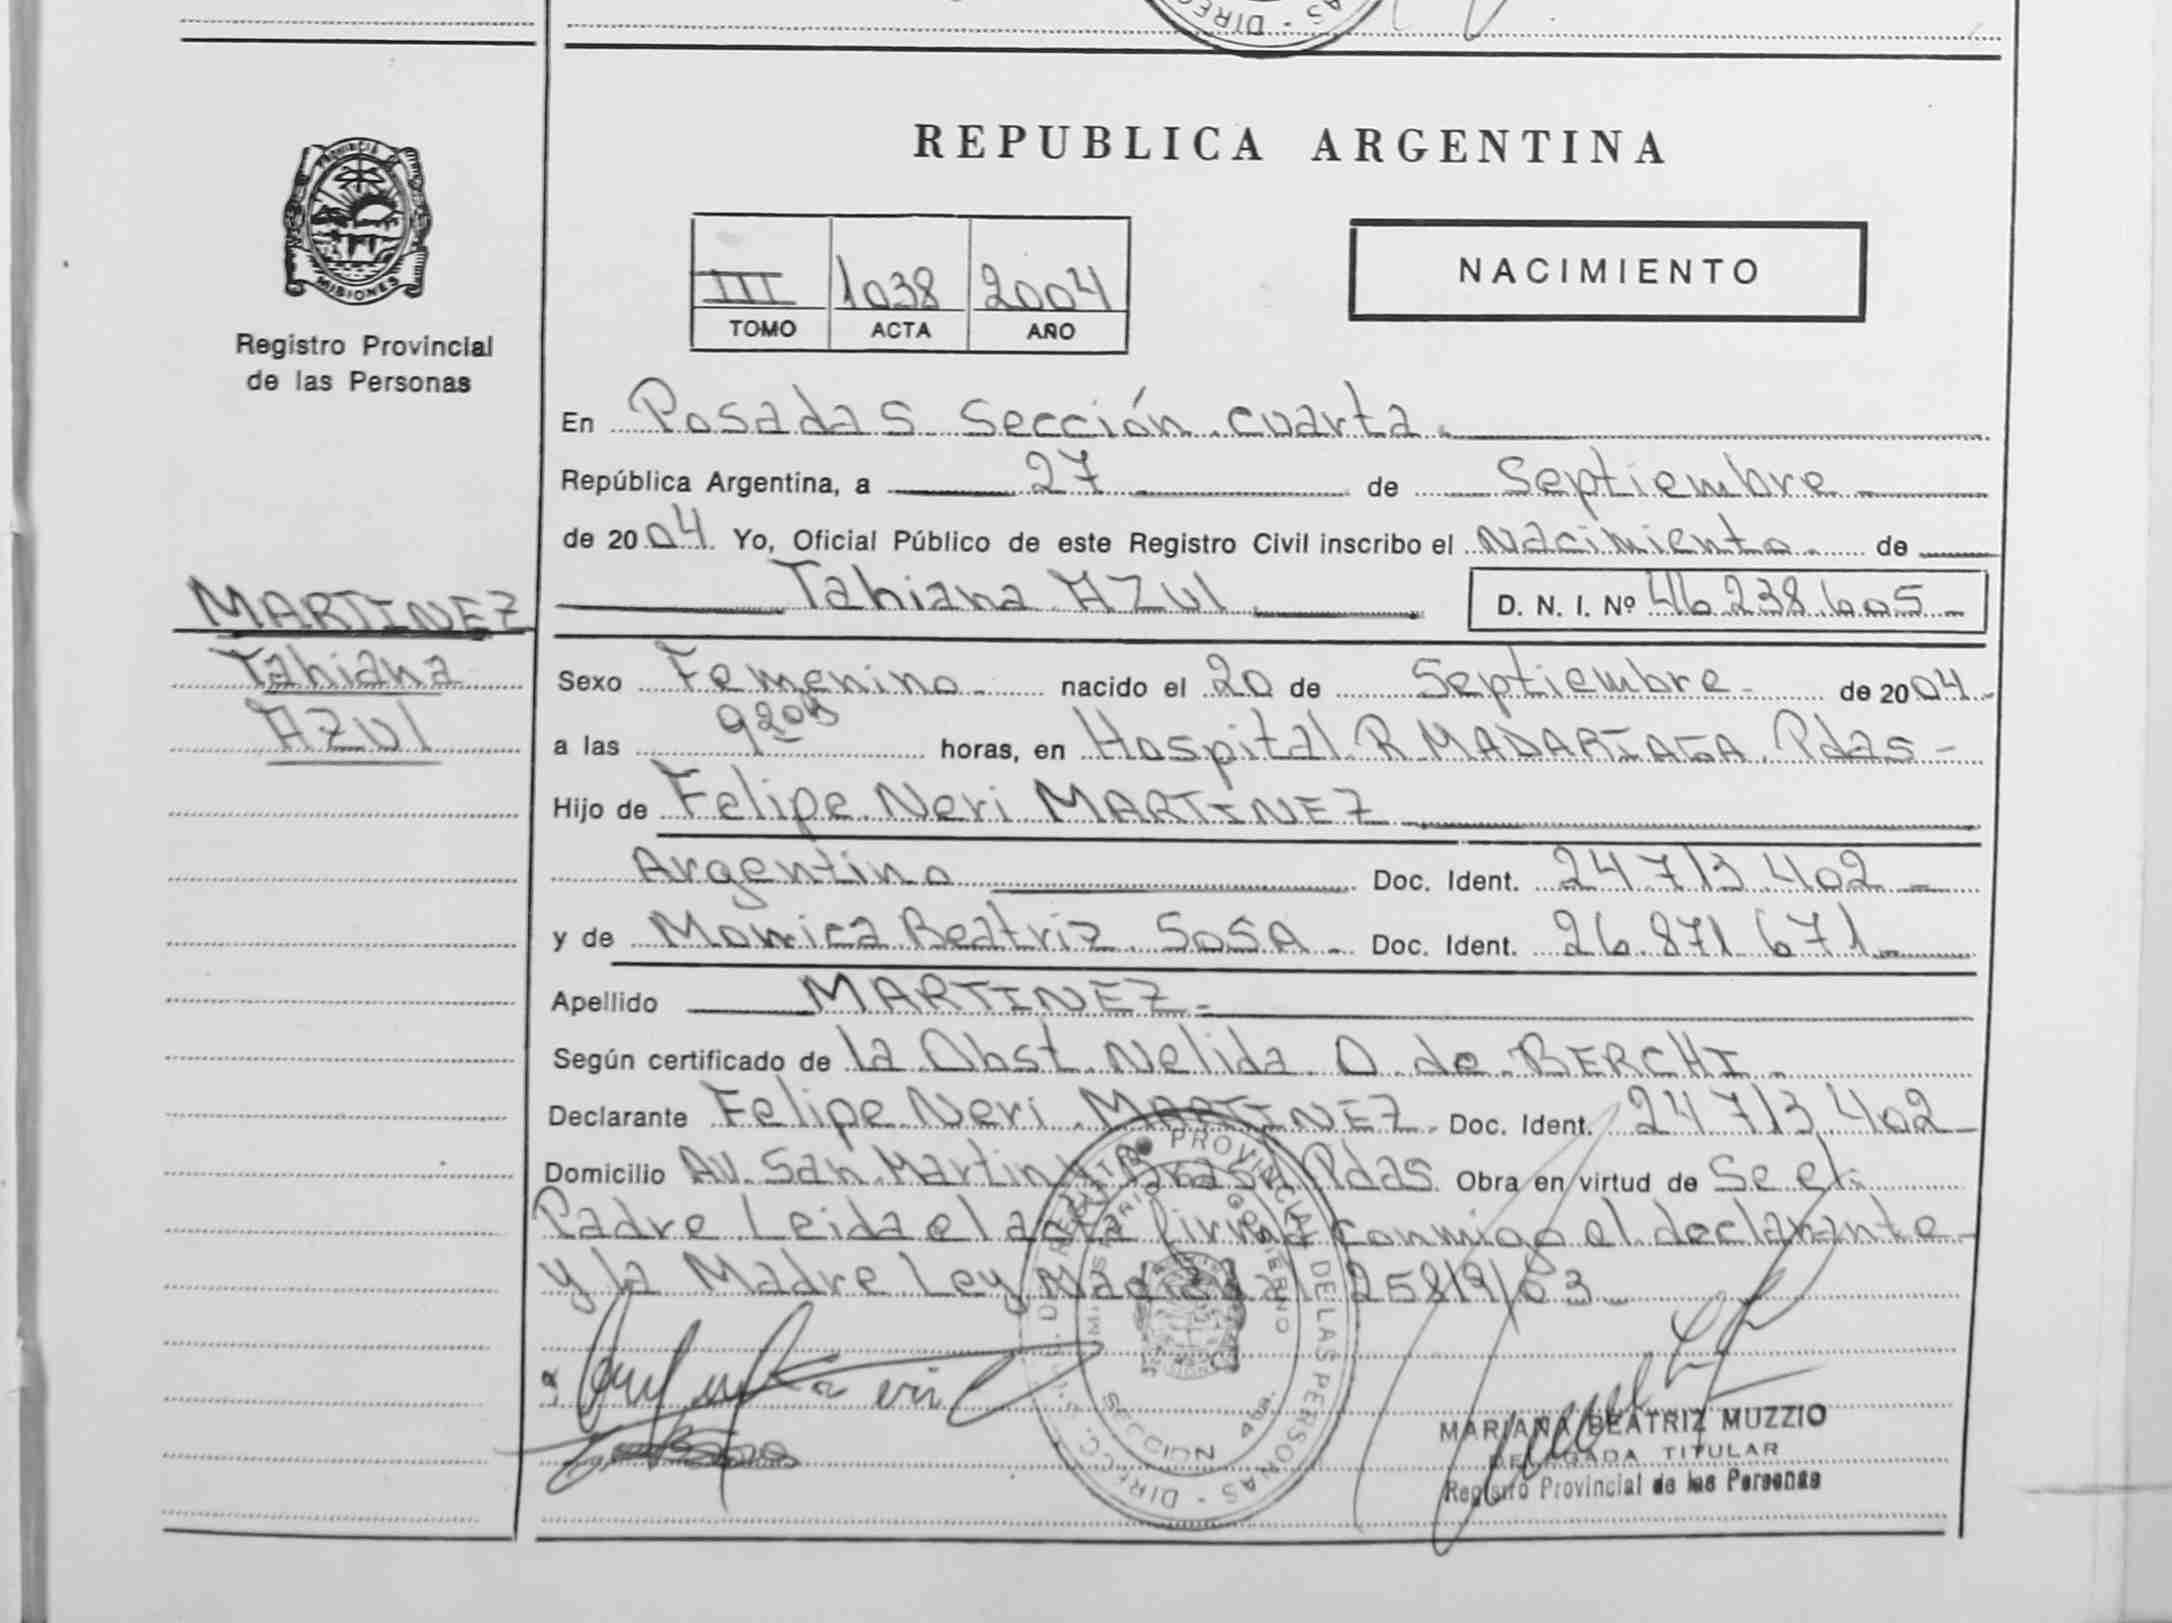 REPUBLICA ARGENTINA
PROVINCIA DE MISIONES
Registro Provincial
de las Personas
III 1038 2004
TOMO ACTA AÑO
NACIMIENTO
MARTINEZ
Tahiana
AZUL
En Posadas Sección cuarta.
República Argentina, a 27 de Septiembre
de 2004. Yo, Oficial Público de este Registro Civil inscribo el Nacimiento de
Tahiana AZUL D. N. I. Nº 46.238.605
Sexo Femenino nacido el 20 de Septiembre de 2004
a las 9 20 horas, en Hospital R MADARIAGA. Pdas
Hijo de Felipe Neri MARTINEZ
Argentino Doc. Ident. 24713402
y de Monica Beatriz SOSA Doc. Ident. 26.871.671
Apellido MARTINEZ
Según certificado de la Obst. Nelida O. de BERCHI
Declarante Felipe Neri MARTINEZ Doc. Ident. 24713402
Domicilio AV. San Martin Pdas. Obra en virtud de Se el
Padre Leida el acta firma conmigo el declarante
y la Madre Ley 25819/03
REGISTRO PROVINCIAL DE LAS PERSONAS - DIRECC.
MINISTERIO DE GOBIERNO
SECCION 4ta.
MARIANA BEATRIZ MUZZIO
DELEGADA TITULAR
Registro Provincial de las Personas